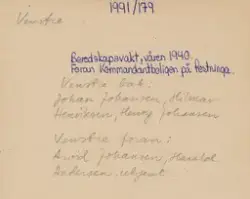 1991/179
Venstre
Beredskapsvakt, våren 1940.
Foran Kommandantboligen på Festninga.
Venstre bak:
Johan Johansen, Hilmar
Henriksen, Henry Johansen
Venstre foran:
Arvid Johansen, Harald
Andersen, ukjent